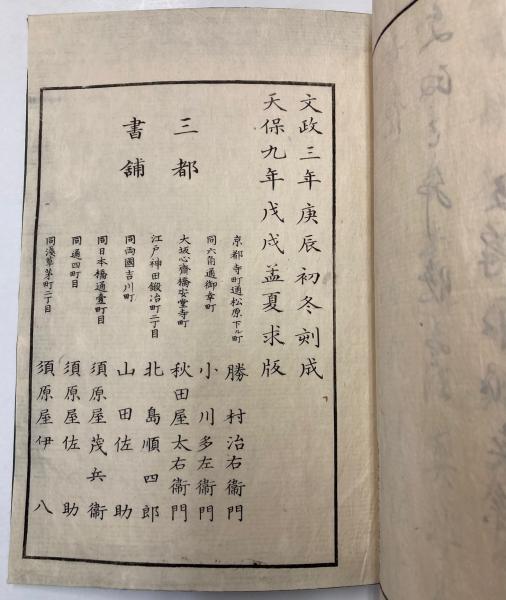 文政三年庚辰初冬刻成
天保九年戊戌孟夏求版
三都
書舗
京都寺町通松原下ル町 勝村治右衞門
同六角通御幸町 小川多左衞門
大坂心齋橋安堂寺町 秋田屋太右衞門
江戸神田鍛冶町二丁目 北島順四郎
同両國吉川町 山田佐助
同日本橋通壹町目 須原屋茂兵衞
同通四町目 須原屋佐助
同淺草茅町二丁目 須原屋伊八